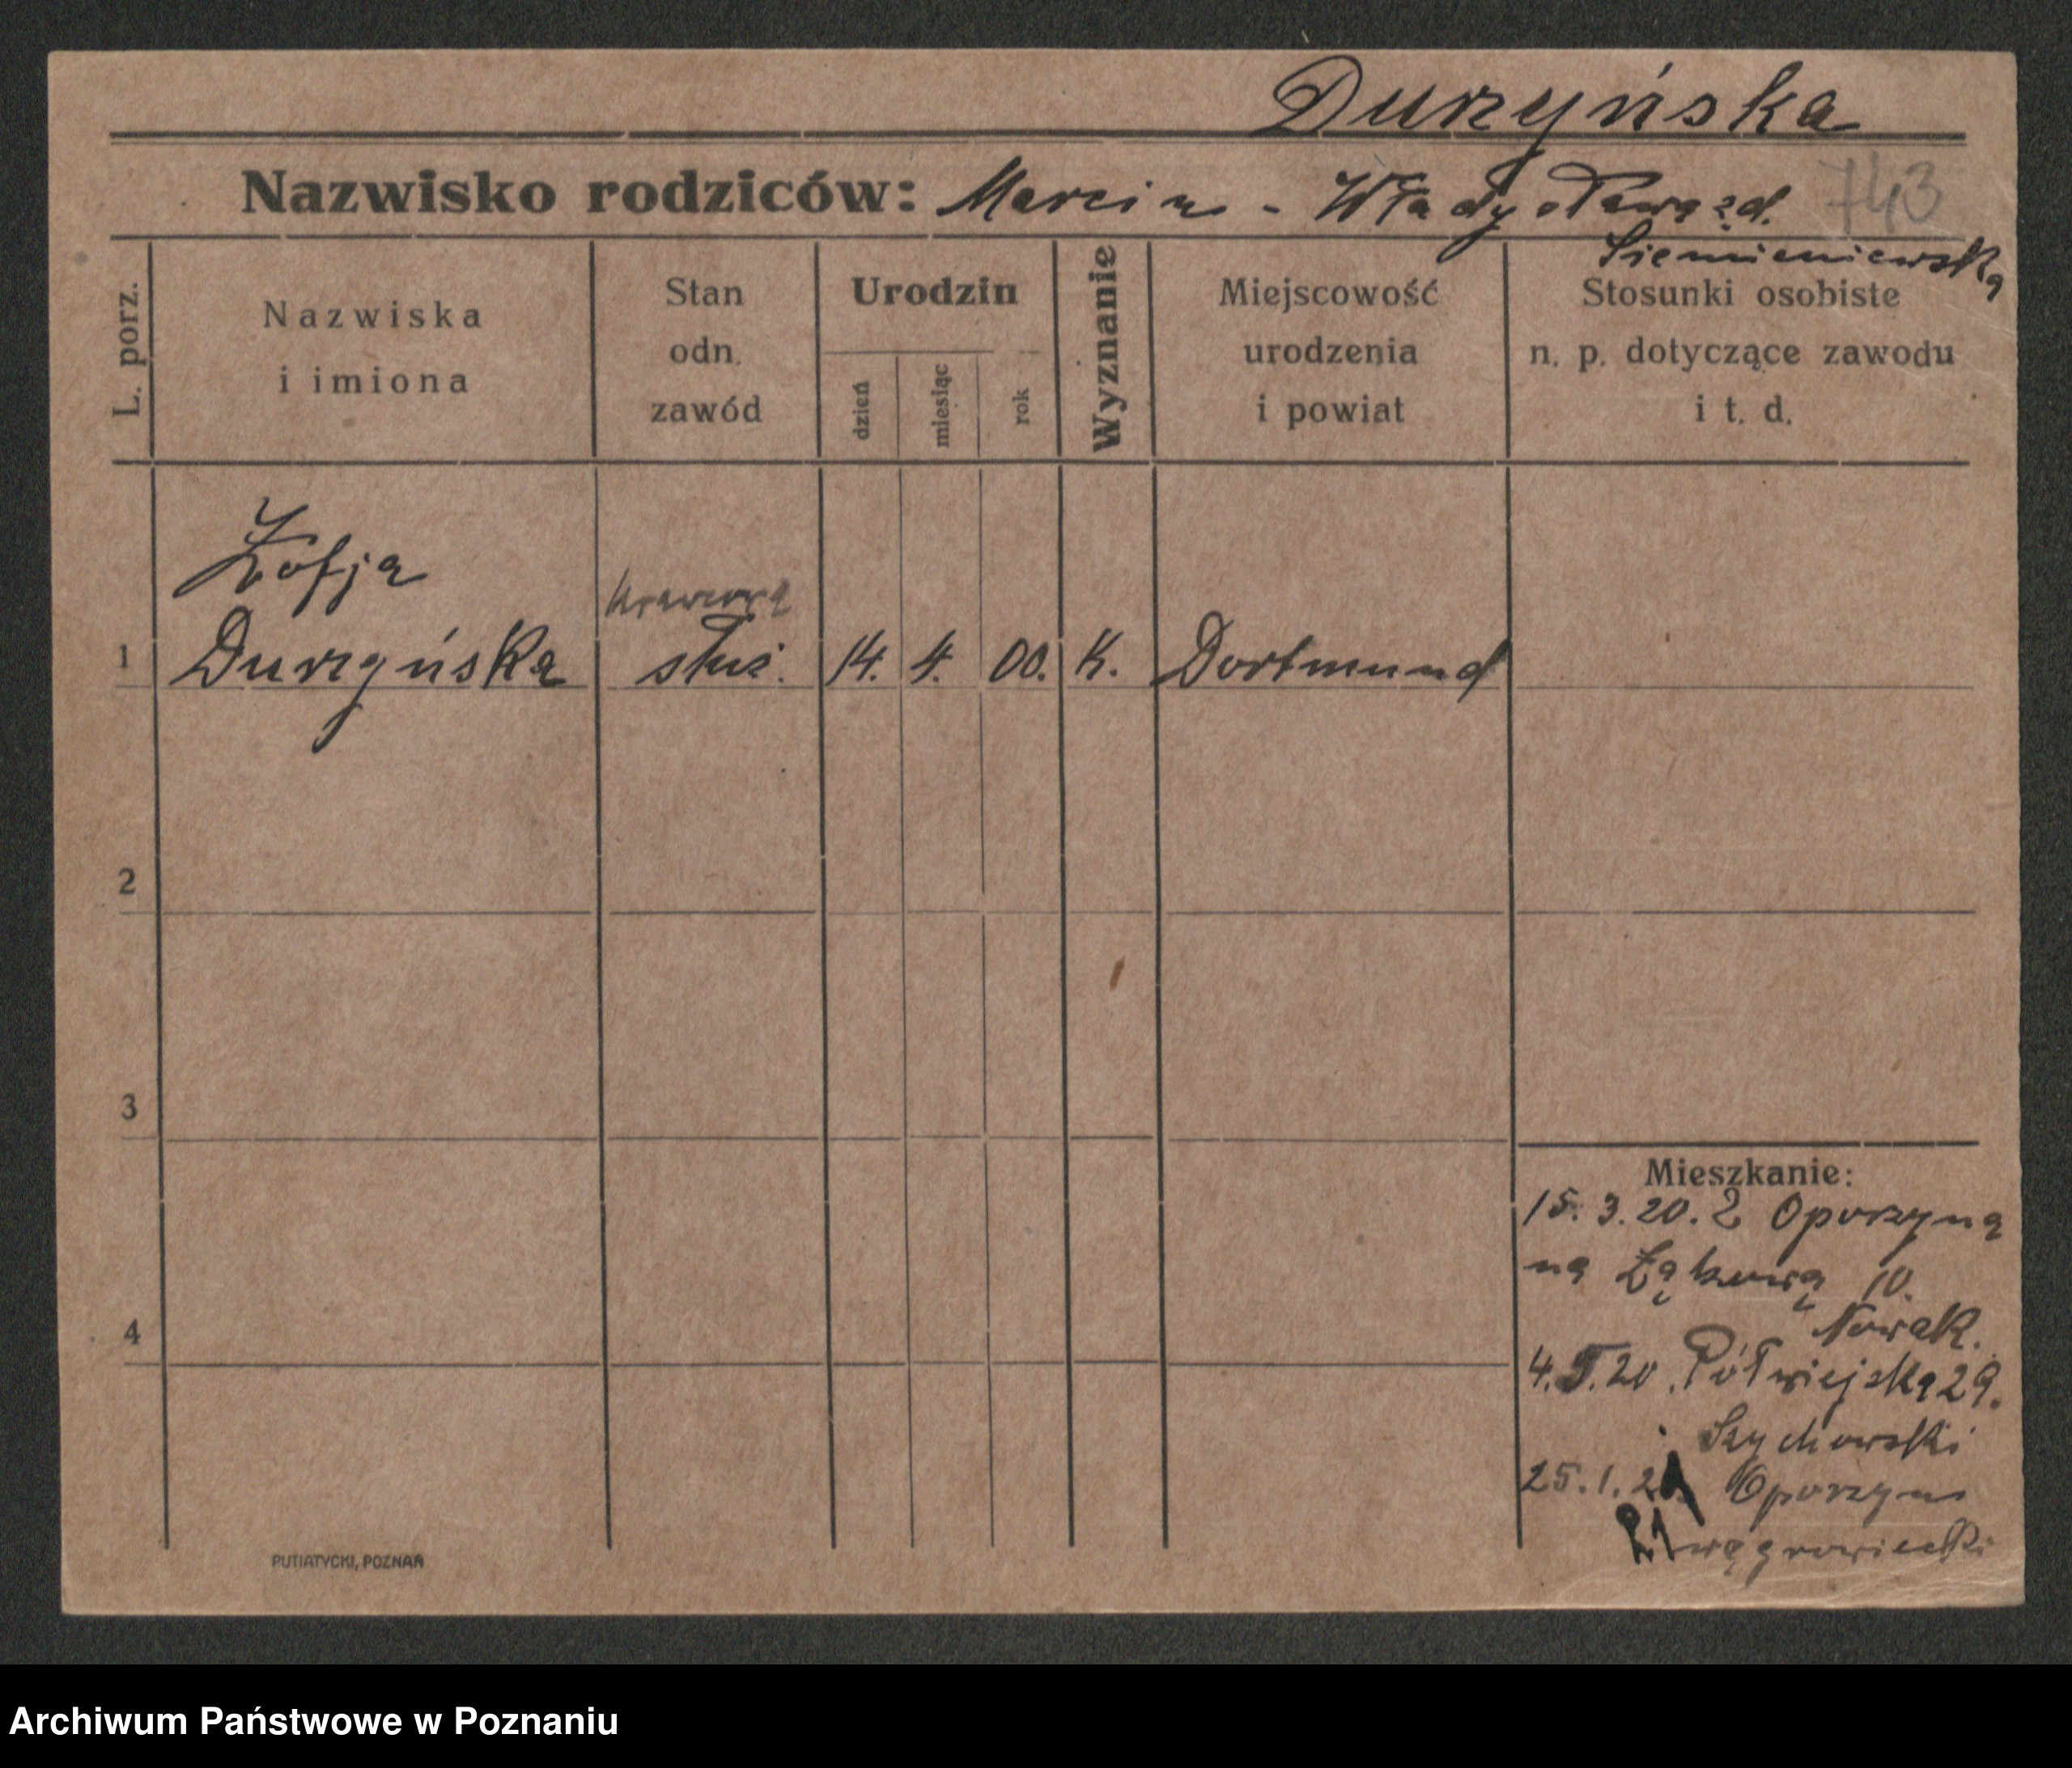 Durzyńska
Nazwisko rodziców: Marcin - Władysława zd.
743
Siemieniewska
L. porz.
Nazwiska
i imiona
Stan
odn.
zawód
Urodzin
dzień
miesiąc
rok
Wyznanie
Miejscowość
urodzenia
i powiat
Stosunki osobiste
n. p. dotyczące zawodu
i t. d.
Zofja
krawcowa
1 Durzyńska służ. 14. 4. 00. K. Dortmund
2
3
4
Mieszkanie:
15. 3. 20. Z Oporzyna
na Łąkową 10.
Nowak.
4. 5. 20. Półwiejska 29.
Szychowski
25. 1. 21 Oporzyn
21 wągrowiecki
PUTIATYCKI, POZNAŃ
Archiwum Państwowe w Poznaniu